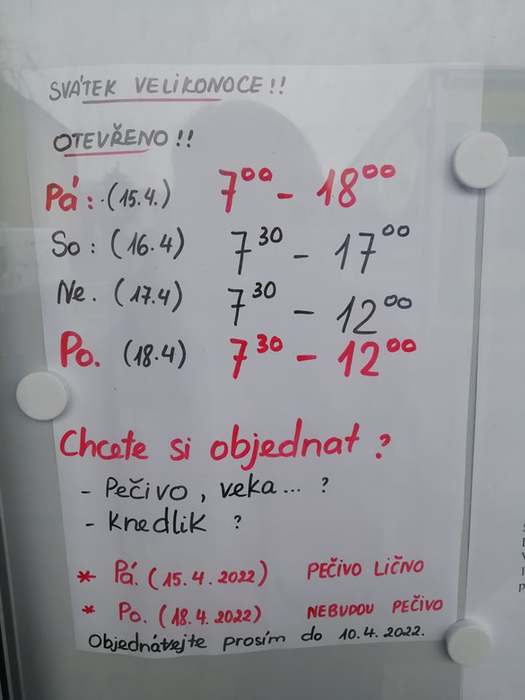 SVÁTEK VELIKONOCE!!
OTEVŘENO!!
Pá: (15.4.) 7⁰⁰ - 18⁰⁰
So: (16.4) 7³⁰ - 17⁰⁰
Ne. (17.4) 7³⁰ - 12⁰⁰
Po. (18.4) 7³⁰ - 12⁰⁰
Chcete si objednat?
- Pečivo, veka... ?
- Knedlik ?
* Pá. (15.4.2022) PEČIVO LIČNO
* Po. (18.4.2022) NEBUDOU PEČIVO
Objednávejte prosím do 10.4.2022.